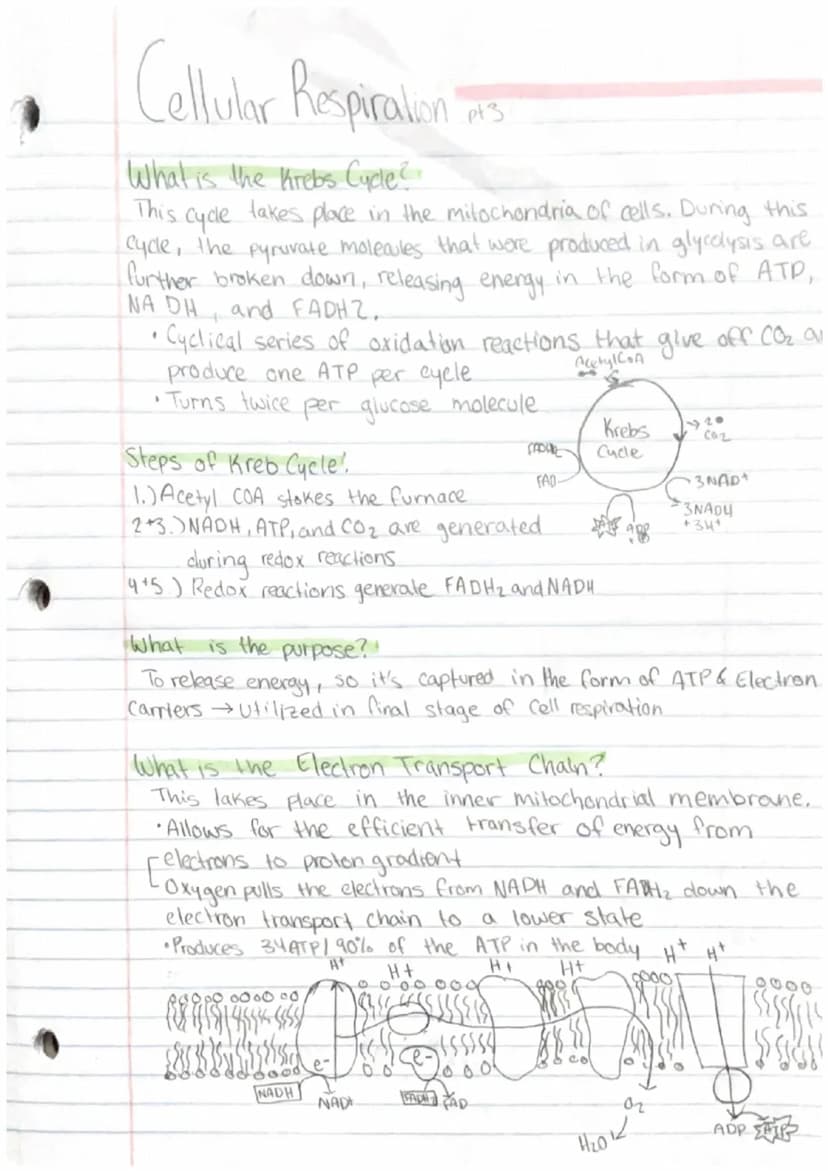 Cellular Respiration pt3
What is the Krebs Cycle?
This cycle takes place in the mitochondria of cells. During this
cycle, the pyruvate molecules that were produced in glycolysis are
further broken down, releasing energy in the form of ATP,
NADH, and FADH2.
• Cyclical series of oxidation reactions that give off CO2 an
produce one ATP per cycle
• Turns twice per glucose molecule
Acetyl CoA
Krebs
Cycle
→ 2
CO2
FADH2
FAD
3NAD+
3NADH
+3H+
ATP ADP
Steps of Kreb Cycle:
1.) Acetyl COA stokes the furnace
2+3.) NADH, ATP, and CO2 are generated
during redox reactions
4+5.) Redox reactions generate FADH2 and NADH
What is the purpose?
To release energy, so it's captured in the form of ATP & Electron
carriers → utilized in final stage of cell respiration
What is the Electron Transport Chain?
This takes place in the inner mitochondrial membrane.
• Allows for the efficient transfer of energy from
electrons to proton gradient
Oxygen pulls the electrons from NADH and FADH2 down the
electron transport chain to a lower state
• Produces 34ATP/90% of the ATP in the body
H+ H+ H+ H+ H+ H+
e- e-
NADH NAD+ FADH2 FAD
O2
H2O
ADP ATP